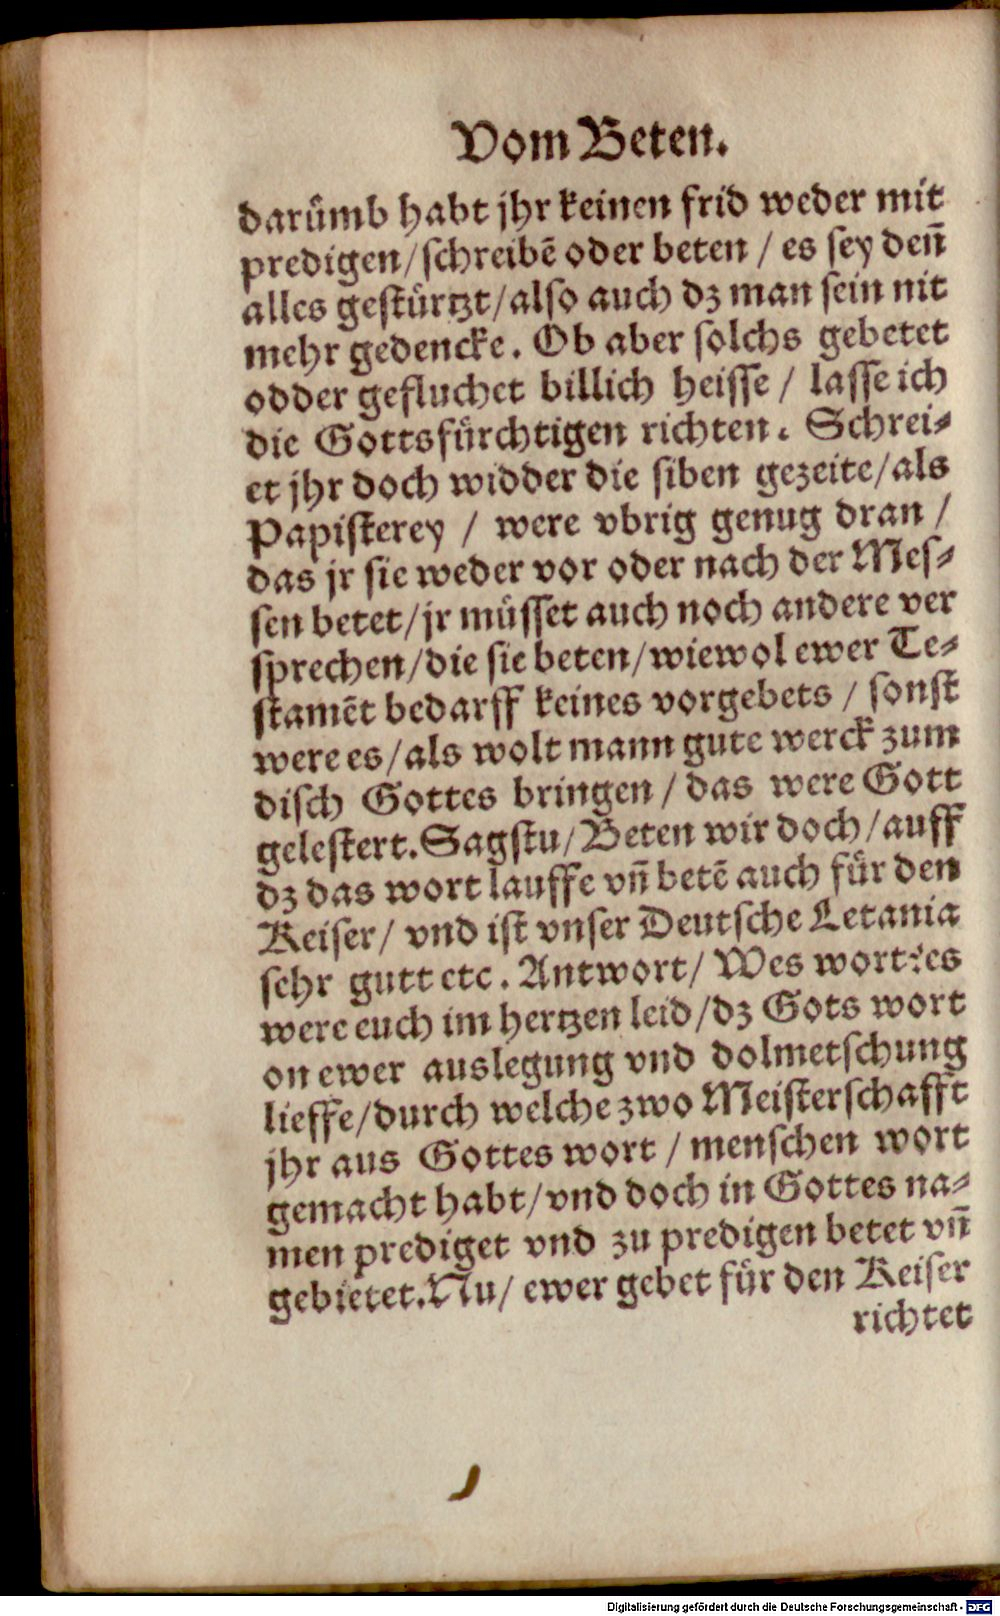 Vom Beten.
darümb habt jhr keinen frid weder mit
predigen/schreibē oder beten / es sey deñ
alles gestürtzt/also auch dz man sein nit
mehr gedencke. Ob aber solchs gebetet
odder gefluchet billich heisse / lasse ich
die Gottsfürchtigen richten. Schrei⸗
et jhr doch widder die siben gezeite/als
Papisterey / were vbrig genug dran /
das jr sie weder vor oder nach der Mes⸗
sen betet/jr müsset auch noch andere ver
sprechen/die sie beten/wiewol ewer Te⸗
stamēt bedarff keines vorgebets / sonst
were es/als wolt mann gute werck zum
disch Gottes bringen / das were Gott
gelestert. Sagstu/Beten wir doch/auff
dz das wort lauffe vñ betē auch für den
Keiser/ vnd ist vnser Deutsche Letania
sehr gutt etc. Antwort/ Wes wort? es
were euch im hertzen leid/dz Gots wort
on ewer auslegung vnd dolmetschung
lieffe/durch welche zwo Meisterschafft
jhr aus Gottes wort / menschen wort
gemacht habt/vnd doch in Gottes na⸗
men prediget vnd zu predigen betet vñ
gebietet. Nu/ ewer gebet für den Keiser
richtet
Digitalisierung gefördert durch die Deutsche Forschungsgemeinschaft - DFG